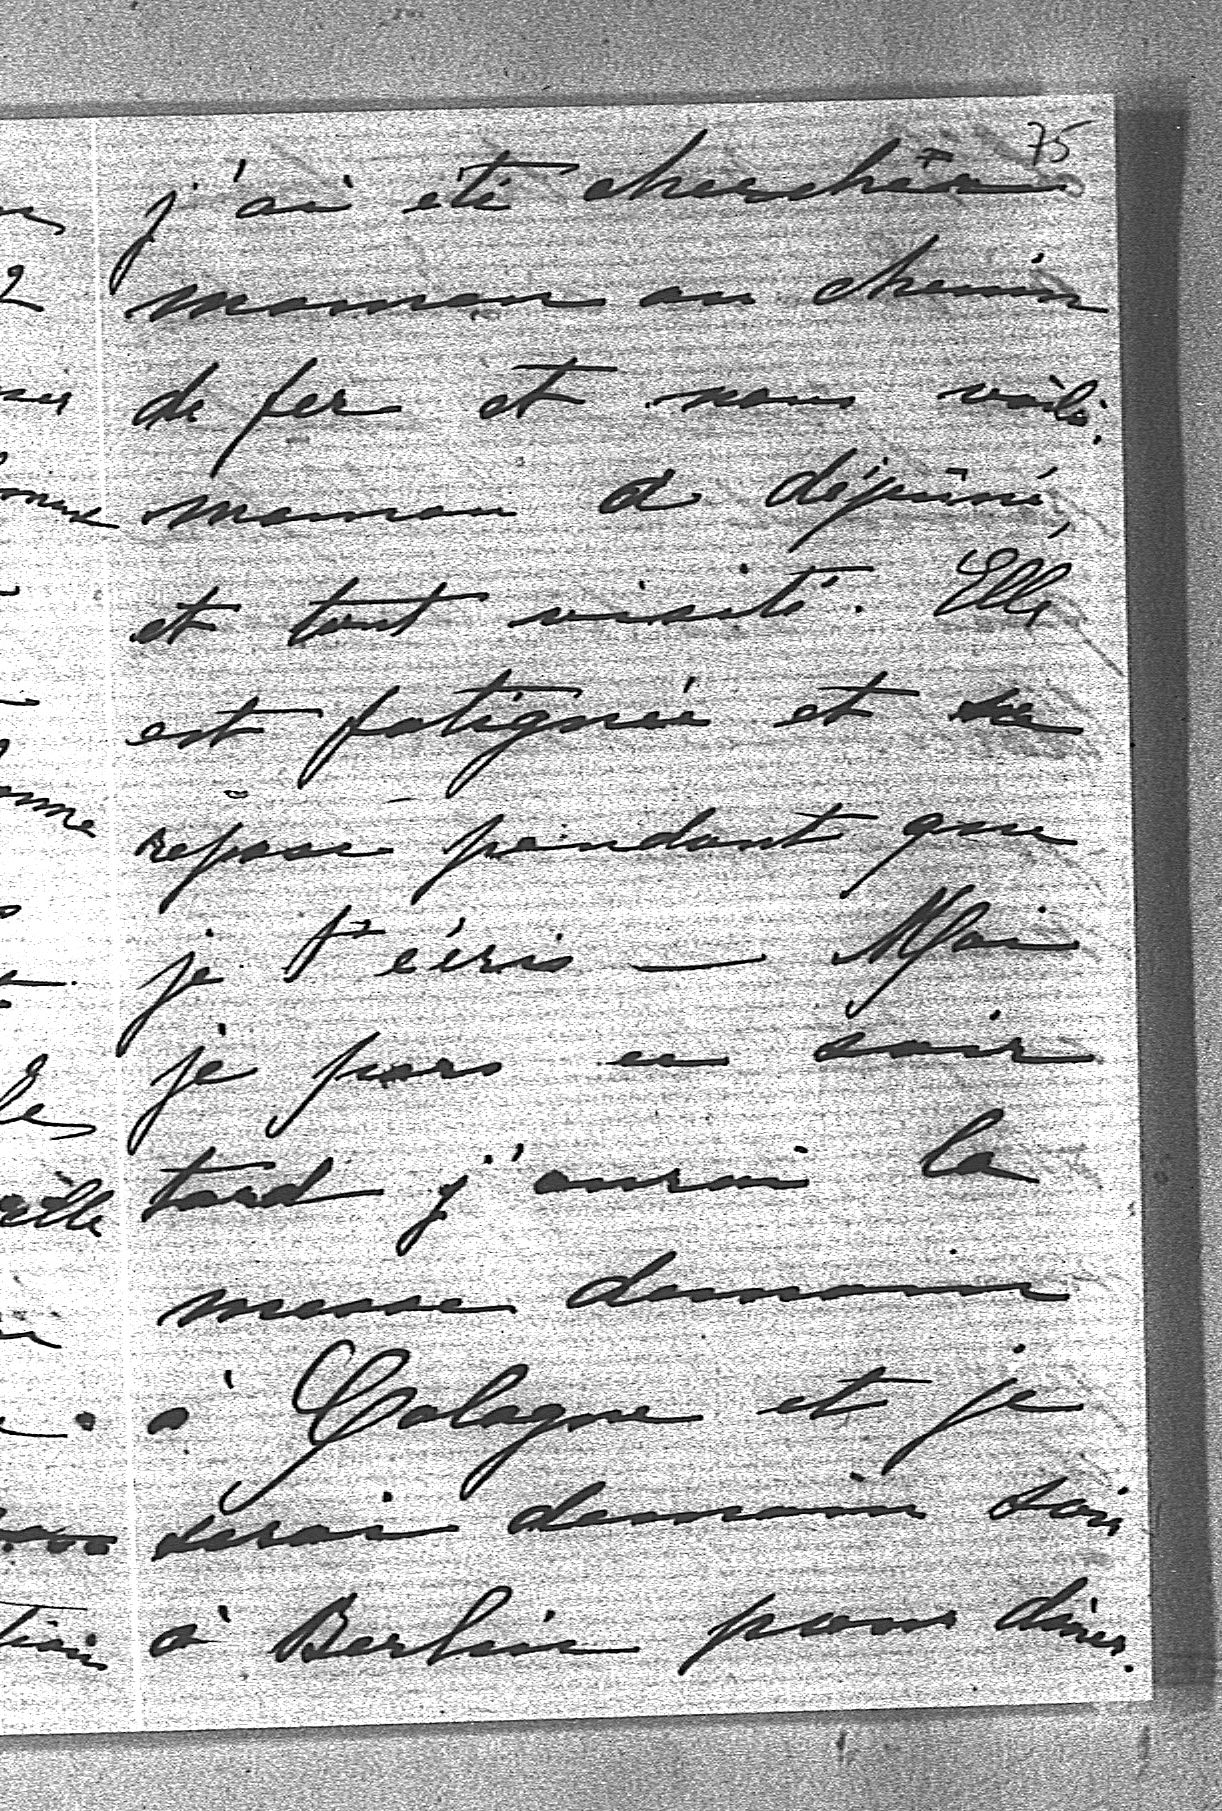 75
j'ai été chercher
maman au chemin
de fer et nous voilà.
maman a déjeûné,
et tout visité. Elle
est fatiguée et se
repose pendant que
je t'écris — Moi
je pars ce soir
tard j'aurai la
messe demain
à Cologne et je
serai demain soir
à Berlin pour dîner.